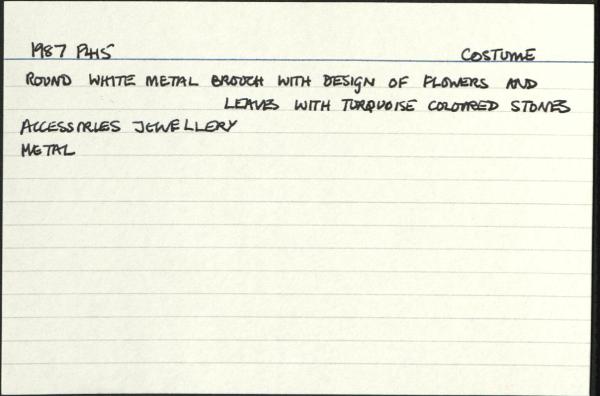 1987 P445 COSTUME
ROUND WHITE METAL BROOCH WITH DESIGN OF FLOWERS AND
LEAVES WITH TURQUOISE COLOURED STONES
ACCESSORIES JEWELLERY
METAL